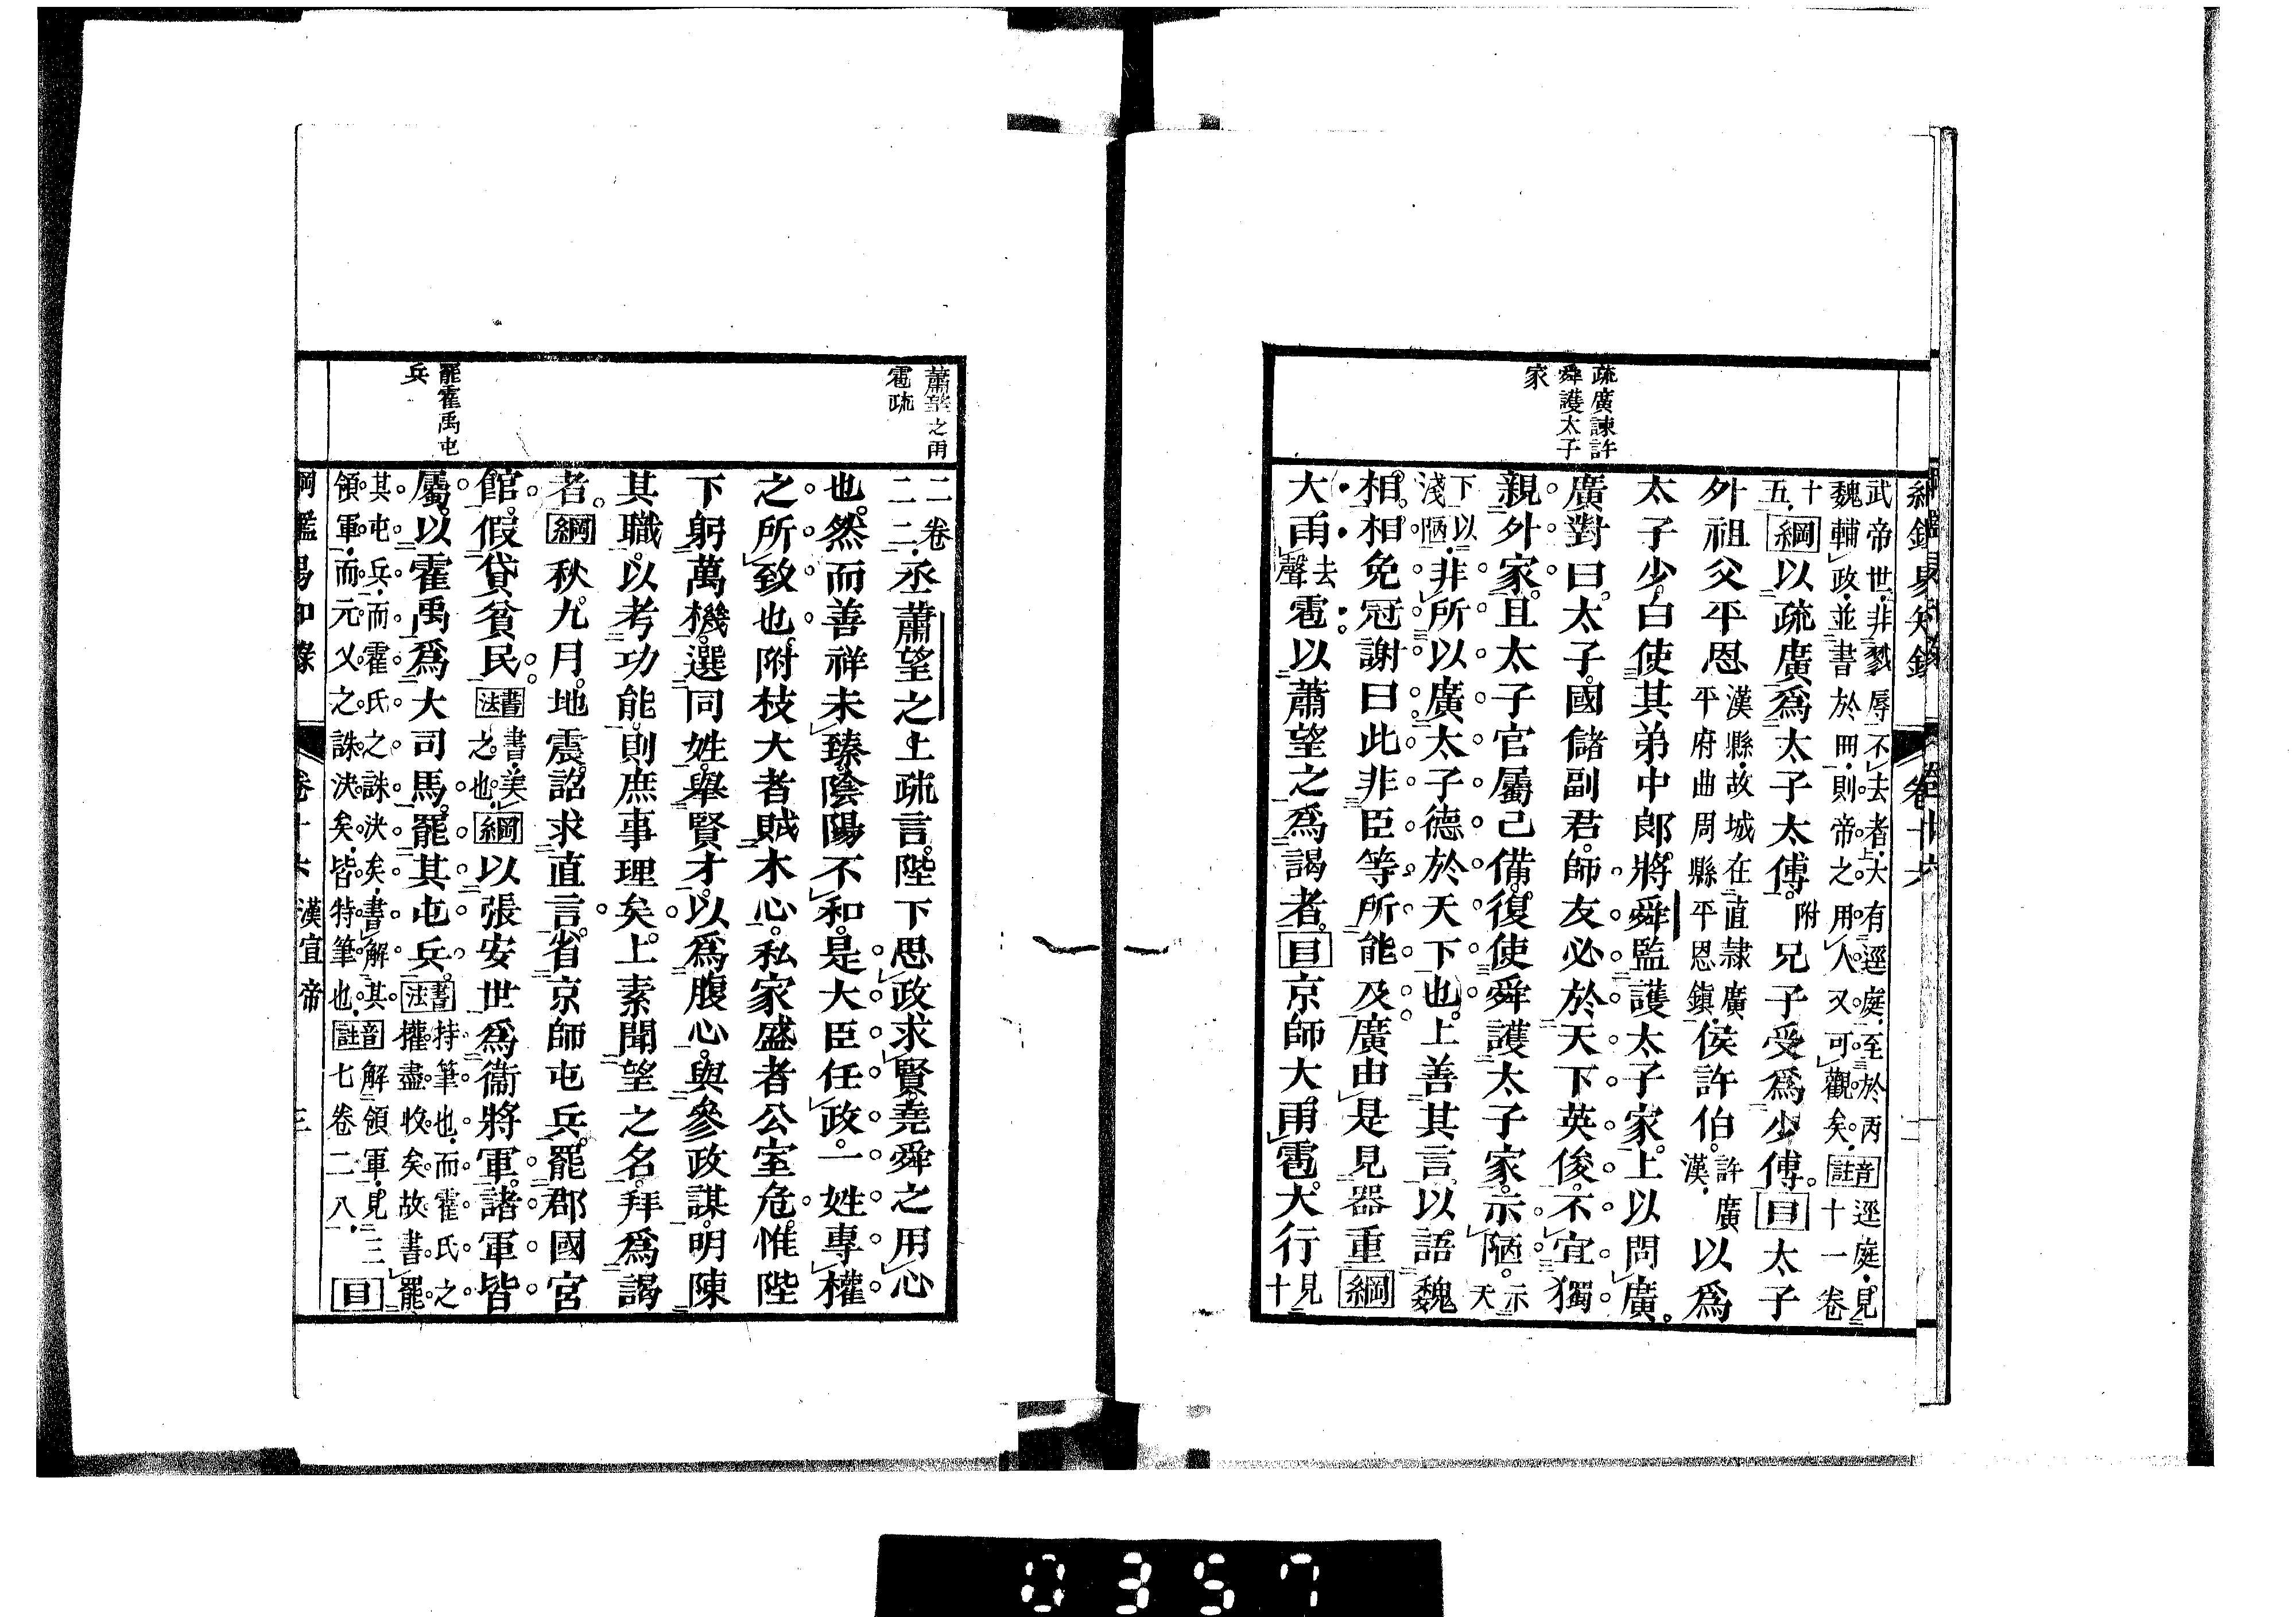 綱鑑易知錄 卷十六 二
疏廣諫許
舜護太子
家
武帝世非戮辱不去者大有逕庭至於丙
魏輔政並書於冊則帝之用人又可觀矣音註逕庭見十一卷
十五綱以疏廣爲太子太傅附兄子受爲少傅目太子
外祖父平恩漢縣故城在直隸廣平府曲周縣平恩鎮侯許伯許廣漢以爲
太子少白使其弟中郎將舜監護太子家上以問廣
廣對曰太子國儲副君師友必於天下英俊不宜獨
親外家且太子官屬已備復使舜護太子家示陋示天
下以淺陋非所以廣太子德於天下也上善其言以語魏
相相免冠謝曰此非臣等所能及廣由是見器重綱
大雨去聲雹以蕭望之爲謁者目京師大雨雹大行見十
蕭望之雨
雹疏
二卷二二丞蕭望之上疏言陛下思政求賢堯舜之用心
也然而善祥未臻陰陽不和是大臣任政一姓專權
之所致也附枝大者賊木心私家盛者公室危惟陛
下躬萬機選同姓舉賢才以爲腹心與參政謀明陳
其職以考功能則庶事理矣上素聞望之名拜爲謁
者綱秋九月地震詔求直言省京師屯兵罷郡國宮
館假貸貧民書法書美之也綱以張安世爲衞將軍諸軍皆
罷霍禹屯
兵
屬以霍禹爲大司馬罷其屯兵書法特筆也而霍氏之權盡收矣故書罷
其屯兵而霍氏之誅決矣書解其
領軍而元乂之誅決矣皆特筆也音註解領軍見三七卷二八目
綱鑑易知錄 卷十六 漢宣帝 三
0357